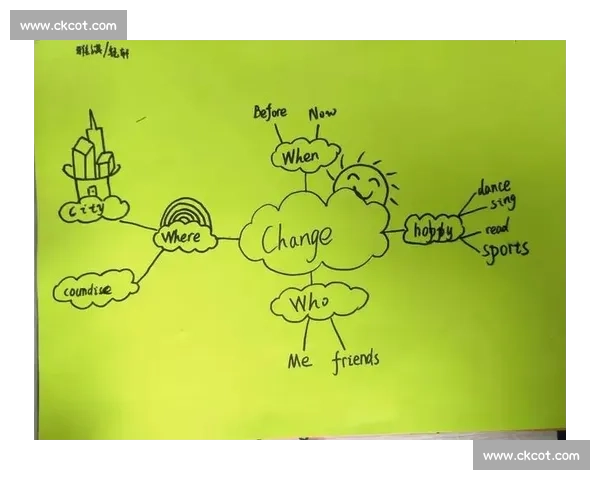 www.ckcot.com
Before Now
When
dance
sing
City
Where
Change
hobby
read
sports
coundise
Who
Me friends
www.ckcot.com